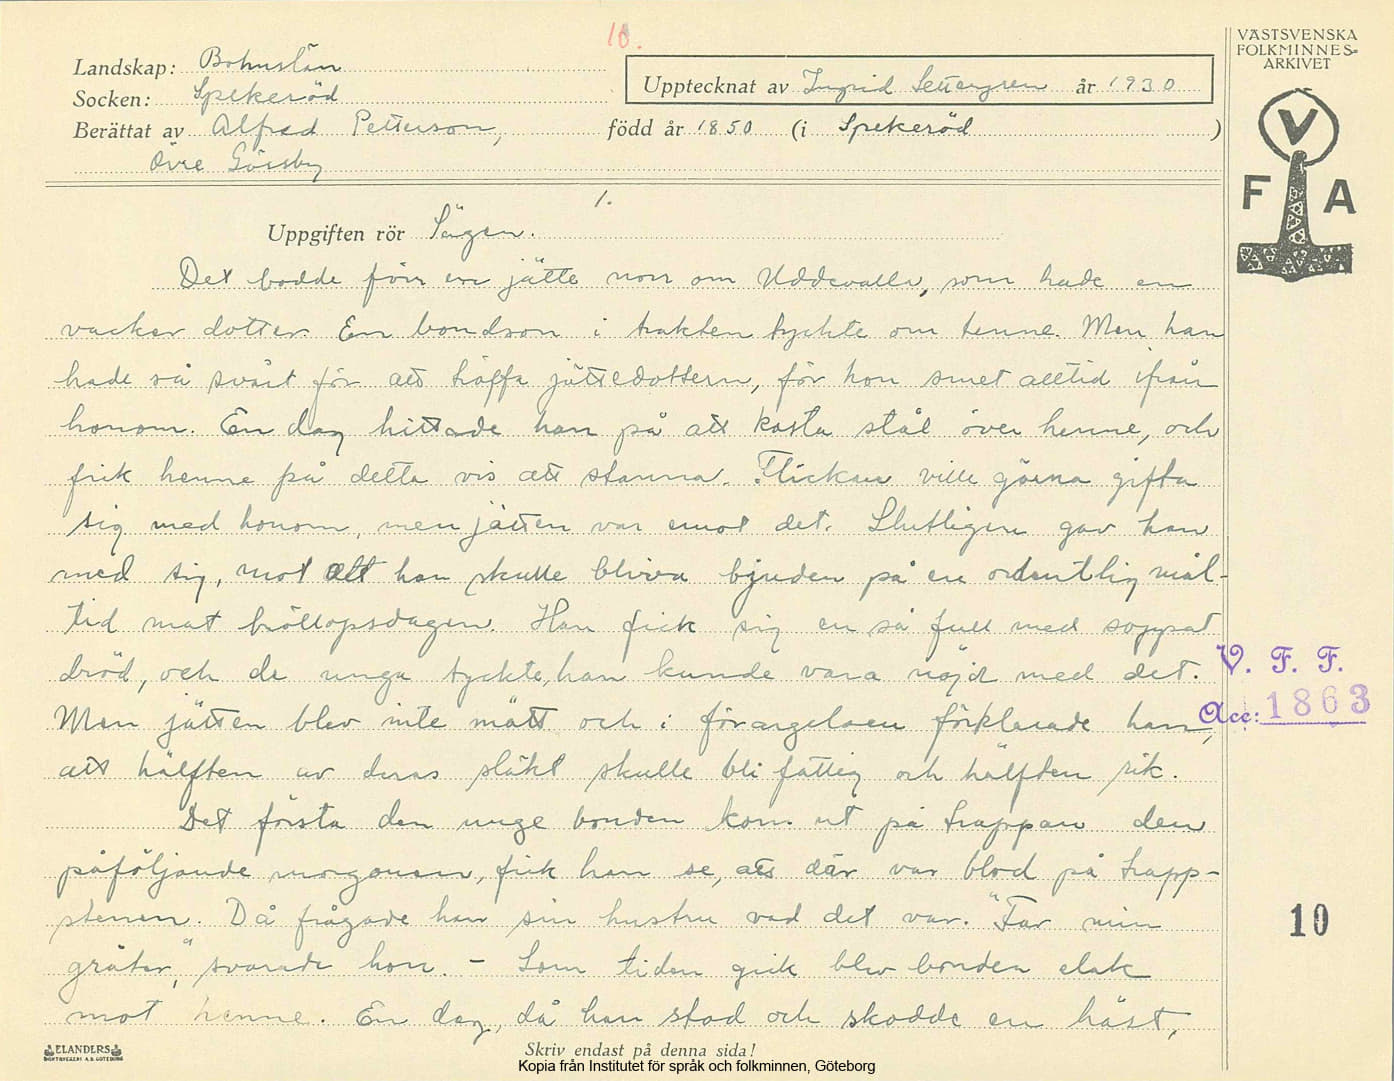 10.
Landskap: Bohuslän
Socken: Spekeröd
Upptecknat av Ingrid Settergren år 1930
Berättat av Alfred Petterson, född år 1850 (i Spekeröd )
Övre Gössby
1.
Uppgiften rör Sägen.
Det bodde förr en jätte norr om Uddevalla, som hade en
vacker dotter. En bondson i trakten tyckte om henne. Men han
hade så svårt för att träffa jättedottern, för hon smet alltid ifrån
honom. En dag hittade han på att kasta stål över henne, och
fick henne på detta vis att stanna. Flickan ville gärna gifta
sig med honom, men jätten var emot det. Slutligen gav han
med sig, mot att han skulle bliva bjuden på en ordentlig mål-
tid mat bröllopsdagen. Han fick sig en så full med soppat
bröd, och de unga tyckte, han kunde vara nöjd med det.
Men jätten blev inte mätt och i förargelsen förklarade han,
att hälften av deras släkt skulle bli fattig och hälften rik.
Det första den unge bonden kom ut på trappan den
påföljande morgonen, fick han se, att där var blod på trapp-
stenen. Då frågade han sin hustru vad det var. "Far min
gråter," svarade hon. – Som tiden gick blev bonden elak
mot henne. En dag, då han stod och skodde en häst,
ELANDERS
BOKTRYCKERI A.B. GÖTEBORG
Skriv endast på denna sida!
Kopia från Institutet för språk och folkminnen, Göteborg
VÄSTSVENSKA
FOLKMINNES-
ARKIVET
V
F A
V. F. F.
Acc: 1863
10